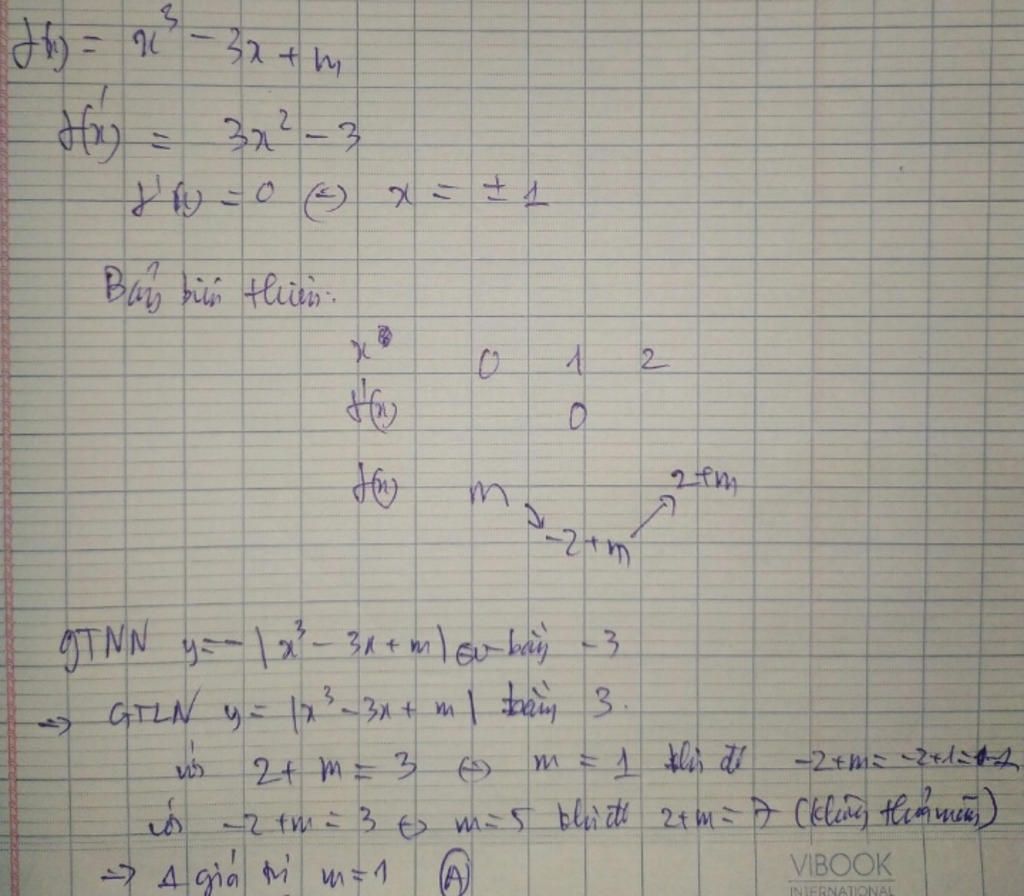 f(x) = x³ - 3x + m
f'(x) = 3x² - 3
f'(x) = 0 (=) x = ± 1
Bảng biến thiên:
x 0 1 2
f'(x) 0
f(x) m -2+m 2+m
GTNN y = - |x³ - 3x + m| bằng -3
=> GTLN y = |x³ - 3x + m| bằng 3.
với 2 + m = 3 <=> m = 1 khi đó -2+m = -2+1 = -1
với -2+m = 3 <=> m = 5 khi đó 2+m = 7 (không thỏa mãn)
=> 1 giá trị m = 1 (A)
VIBOOK
INTERNATIONAL